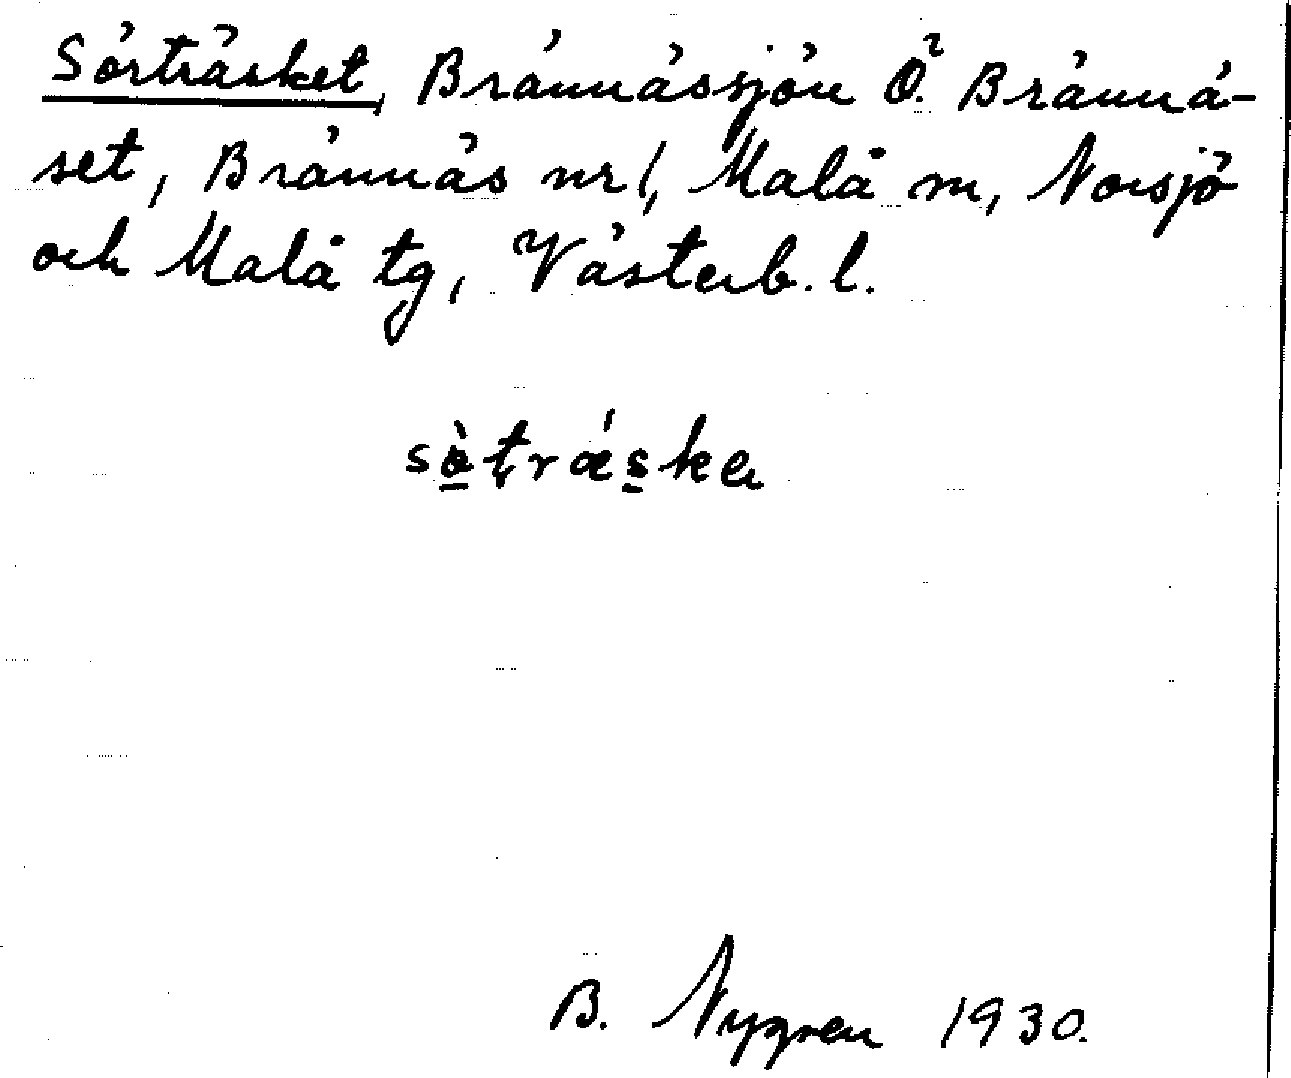 Sörträsket, Brännässjön Ö. Brännä-
set, Brännäs nr 1, Malå sn, Norsjö
och Malå tg, Västerb. l.
sòtrǽska
B. Nygren 1930.